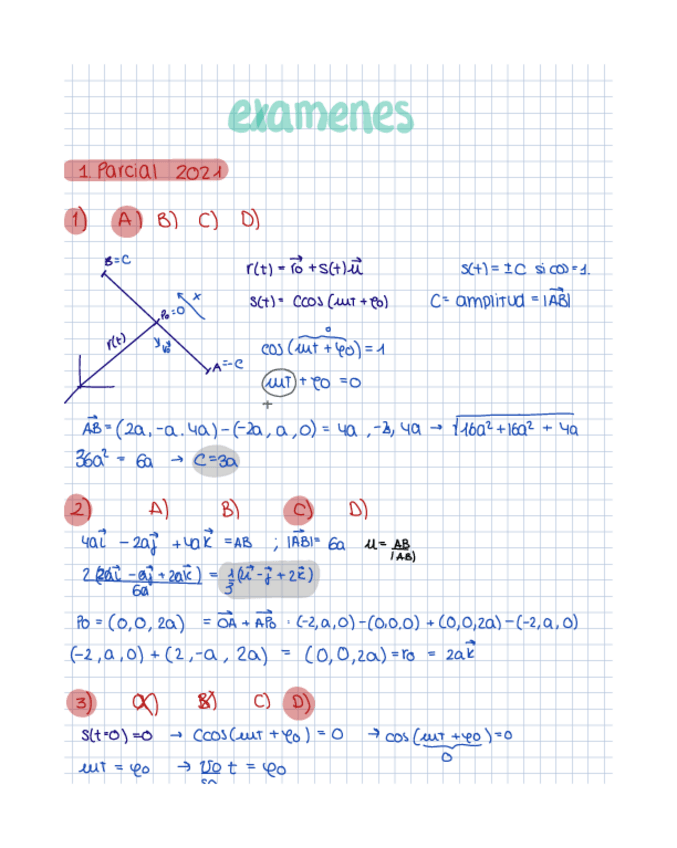 examenes
1. Parcial 2021
1) A) B) C) D)
B=C
r(t) = r⃗o + s(t)u⃗
s(t) = ±C si cos = 1.
P₀=0
x
s(t) = C cos (ωt + φ0)
C = amplitud = |AB⃗|
r(t)
v⃗0
0
cos (ωt + φ0) = 1
A=-C
ωt + φ0 = 0
+
AB⃗ = (2a, -a. 4a) - (-2a, a, 0) = 4a, -2, 4a → √16a² + 16a² + 4a
36a² = 6a → C=3a
2) A) B) C) D)
4ai⃗ - 2aj⃗ + 4ak⃗ = AB ; |AB⃗| = 6a u = AB/|AB|
2(2ai⃗ - aj⃗ + 2ak⃗)/6a = 1/3(2i⃗ - j⃗ + 2k⃗)
P0 = (0, 0, 2a) = OA⃗ + AP0⃗ : (-2, a, 0) - (0, 0, 0) + (0, 0, 2a) - (-2, a, 0)
(-2, a, 0) + (2, -a, 2a) = (0, 0, 2a) = r0 = 2ak⃗
3) A) B) C) D)
s(t=0) = 0 → C cos (ωt + φ0) = 0 → cos (ωt + φ0) = 0
0
ωt = φ0 → v0 t = φ0